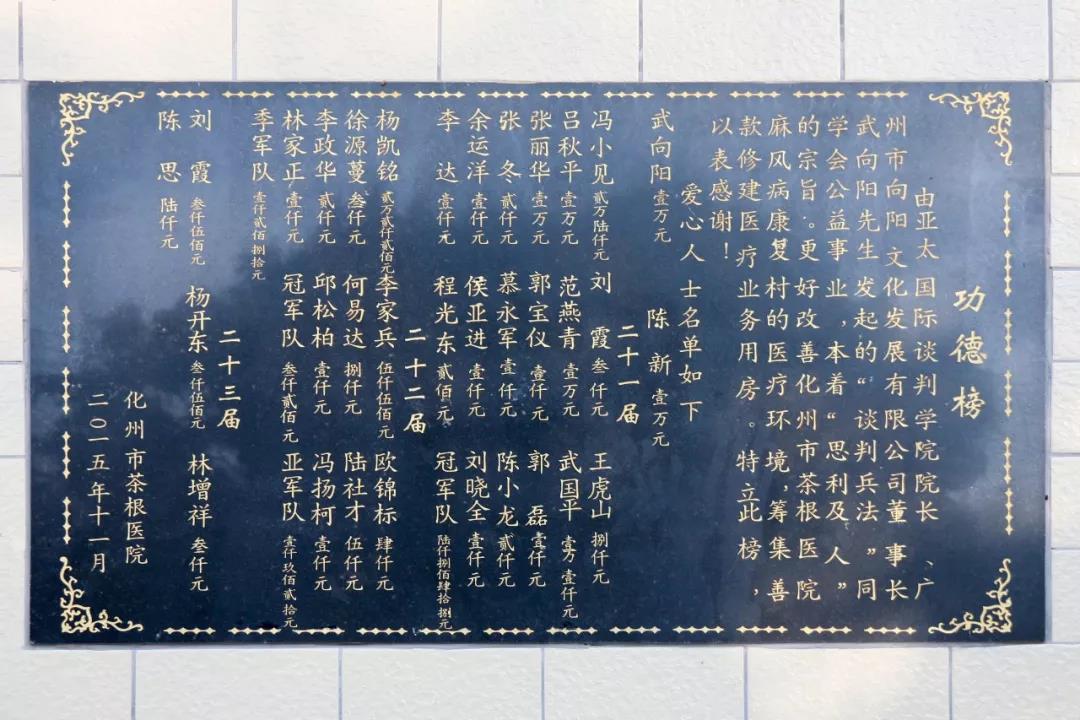 功德榜
由亚太国际谈判学院院长、广
州市向阳文化发展有限公司董事长
武向阳先生发起的“谈判兵法”同
学会公益事业，本着“思利及人”
的宗旨。更好改善化州市茶根医院
麻风病康复村的医疗环境，筹集善
款修建医疗业务用房。特立此榜，
以表感谢！
爱心人士名单如下
武向阳 壹万元 陈新 壹万元
二十一届
冯小见 贰万陆仟元 刘霞 叁仟元 王虎山 捌仟元
吕秋平 壹万元 范燕青 壹万元 武国平 壹万壹仟元
张丽华 壹万元 郭宝仪 壹仟元 郭磊 壹仟元
张冬 贰仟元 慕永军 壹仟元 陈小龙 贰仟元
余运洋 壹仟元 侯亚进 壹仟元 刘晓全 壹仟元
李达 壹仟元 程光东 贰佰元 冠军队 陆仟捌佰肆拾捌元
二十二届
杨凯铭 贰万贰仟贰佰元 李家兵 伍仟伍佰元 欧锦标 肆仟元
徐源蔓 叁仟元 何易达 捌仟元 陆社才 伍仟元
李政华 贰仟元 邱松柏 壹仟元 冯扬柯 壹仟元
林家正 壹仟元 冠军队 叁仟贰佰元 亚军队 壹仟玖佰贰拾元
季军队 壹仟贰佰捌拾元
二十三届
刘霞 叁仟伍佰元 杨开东 叁仟伍佰元 林增祥 叁仟元
陈思 陆仟元
化州市茶根医院
二〇一五年十一月